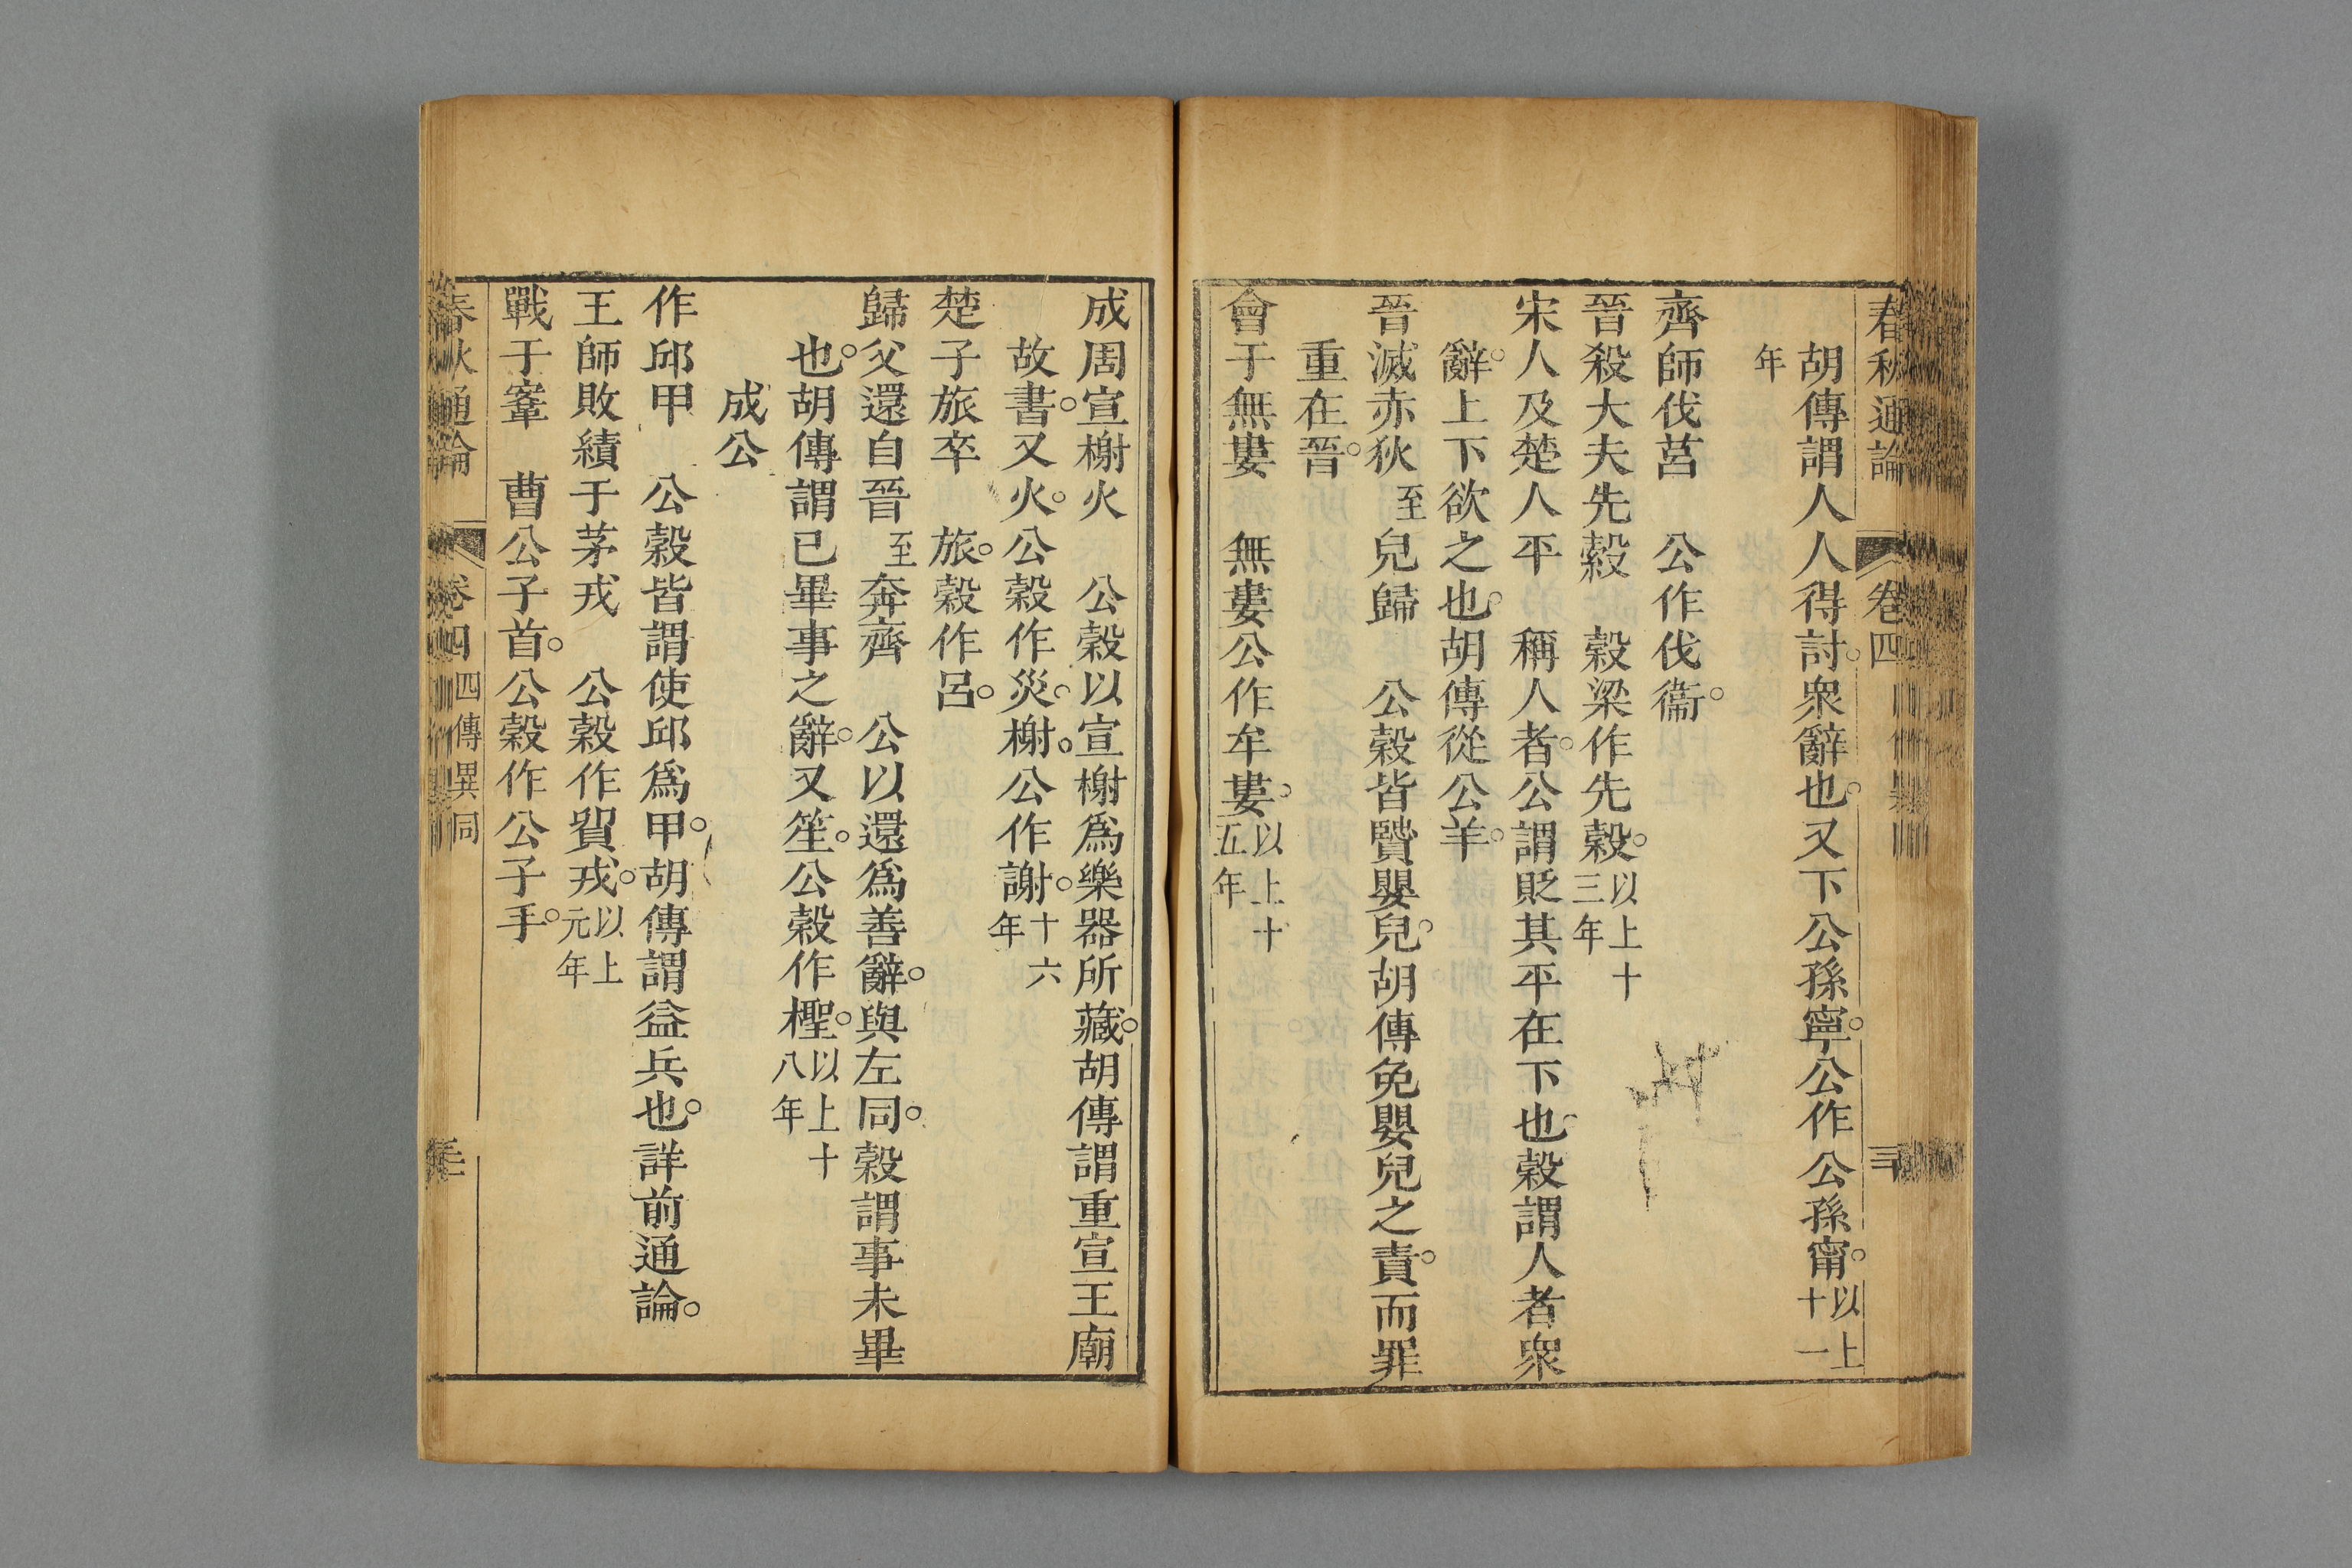 春秋通論 卷四
胡傳謂人人得討。衆辭也。又下公孫寧。公作公孫甯。以上十一
年
齊師伐莒 公作伐衞。
晉殺大夫先縠 穀梁作先穀。以上十三年
宋人及楚人平 稱人者。公謂貶其平在下也。穀謂人者衆
辭。上下欲之也。胡傳從公羊。
晉滅赤狄至兒歸 公穀皆賢嬰兒。胡傳免嬰兒之責。而罪
重在晉。
會于無婁 無婁公作牟婁。以上十五年
成周宣榭火 公穀以宣榭爲樂器所藏。胡傳謂重宣王廟
故書。又火。公穀作災。榭。公作謝。十六年
楚子旅卒 旅。穀作呂。
歸父還自晉至奔齊 公以還爲善辭。與左同。穀謂事未畢
也。胡傳謂已畢事之辭。又笙。公穀作檉。以上十八年
成公
作邱甲 公穀皆謂使邱爲甲。胡傳謂益兵也。詳前通論。
王師敗績于茅戎 公穀作貿戎。以上元年
戰于鞌 曹公子首。公穀作公子手。
春秋通論 卷四 四傳異同